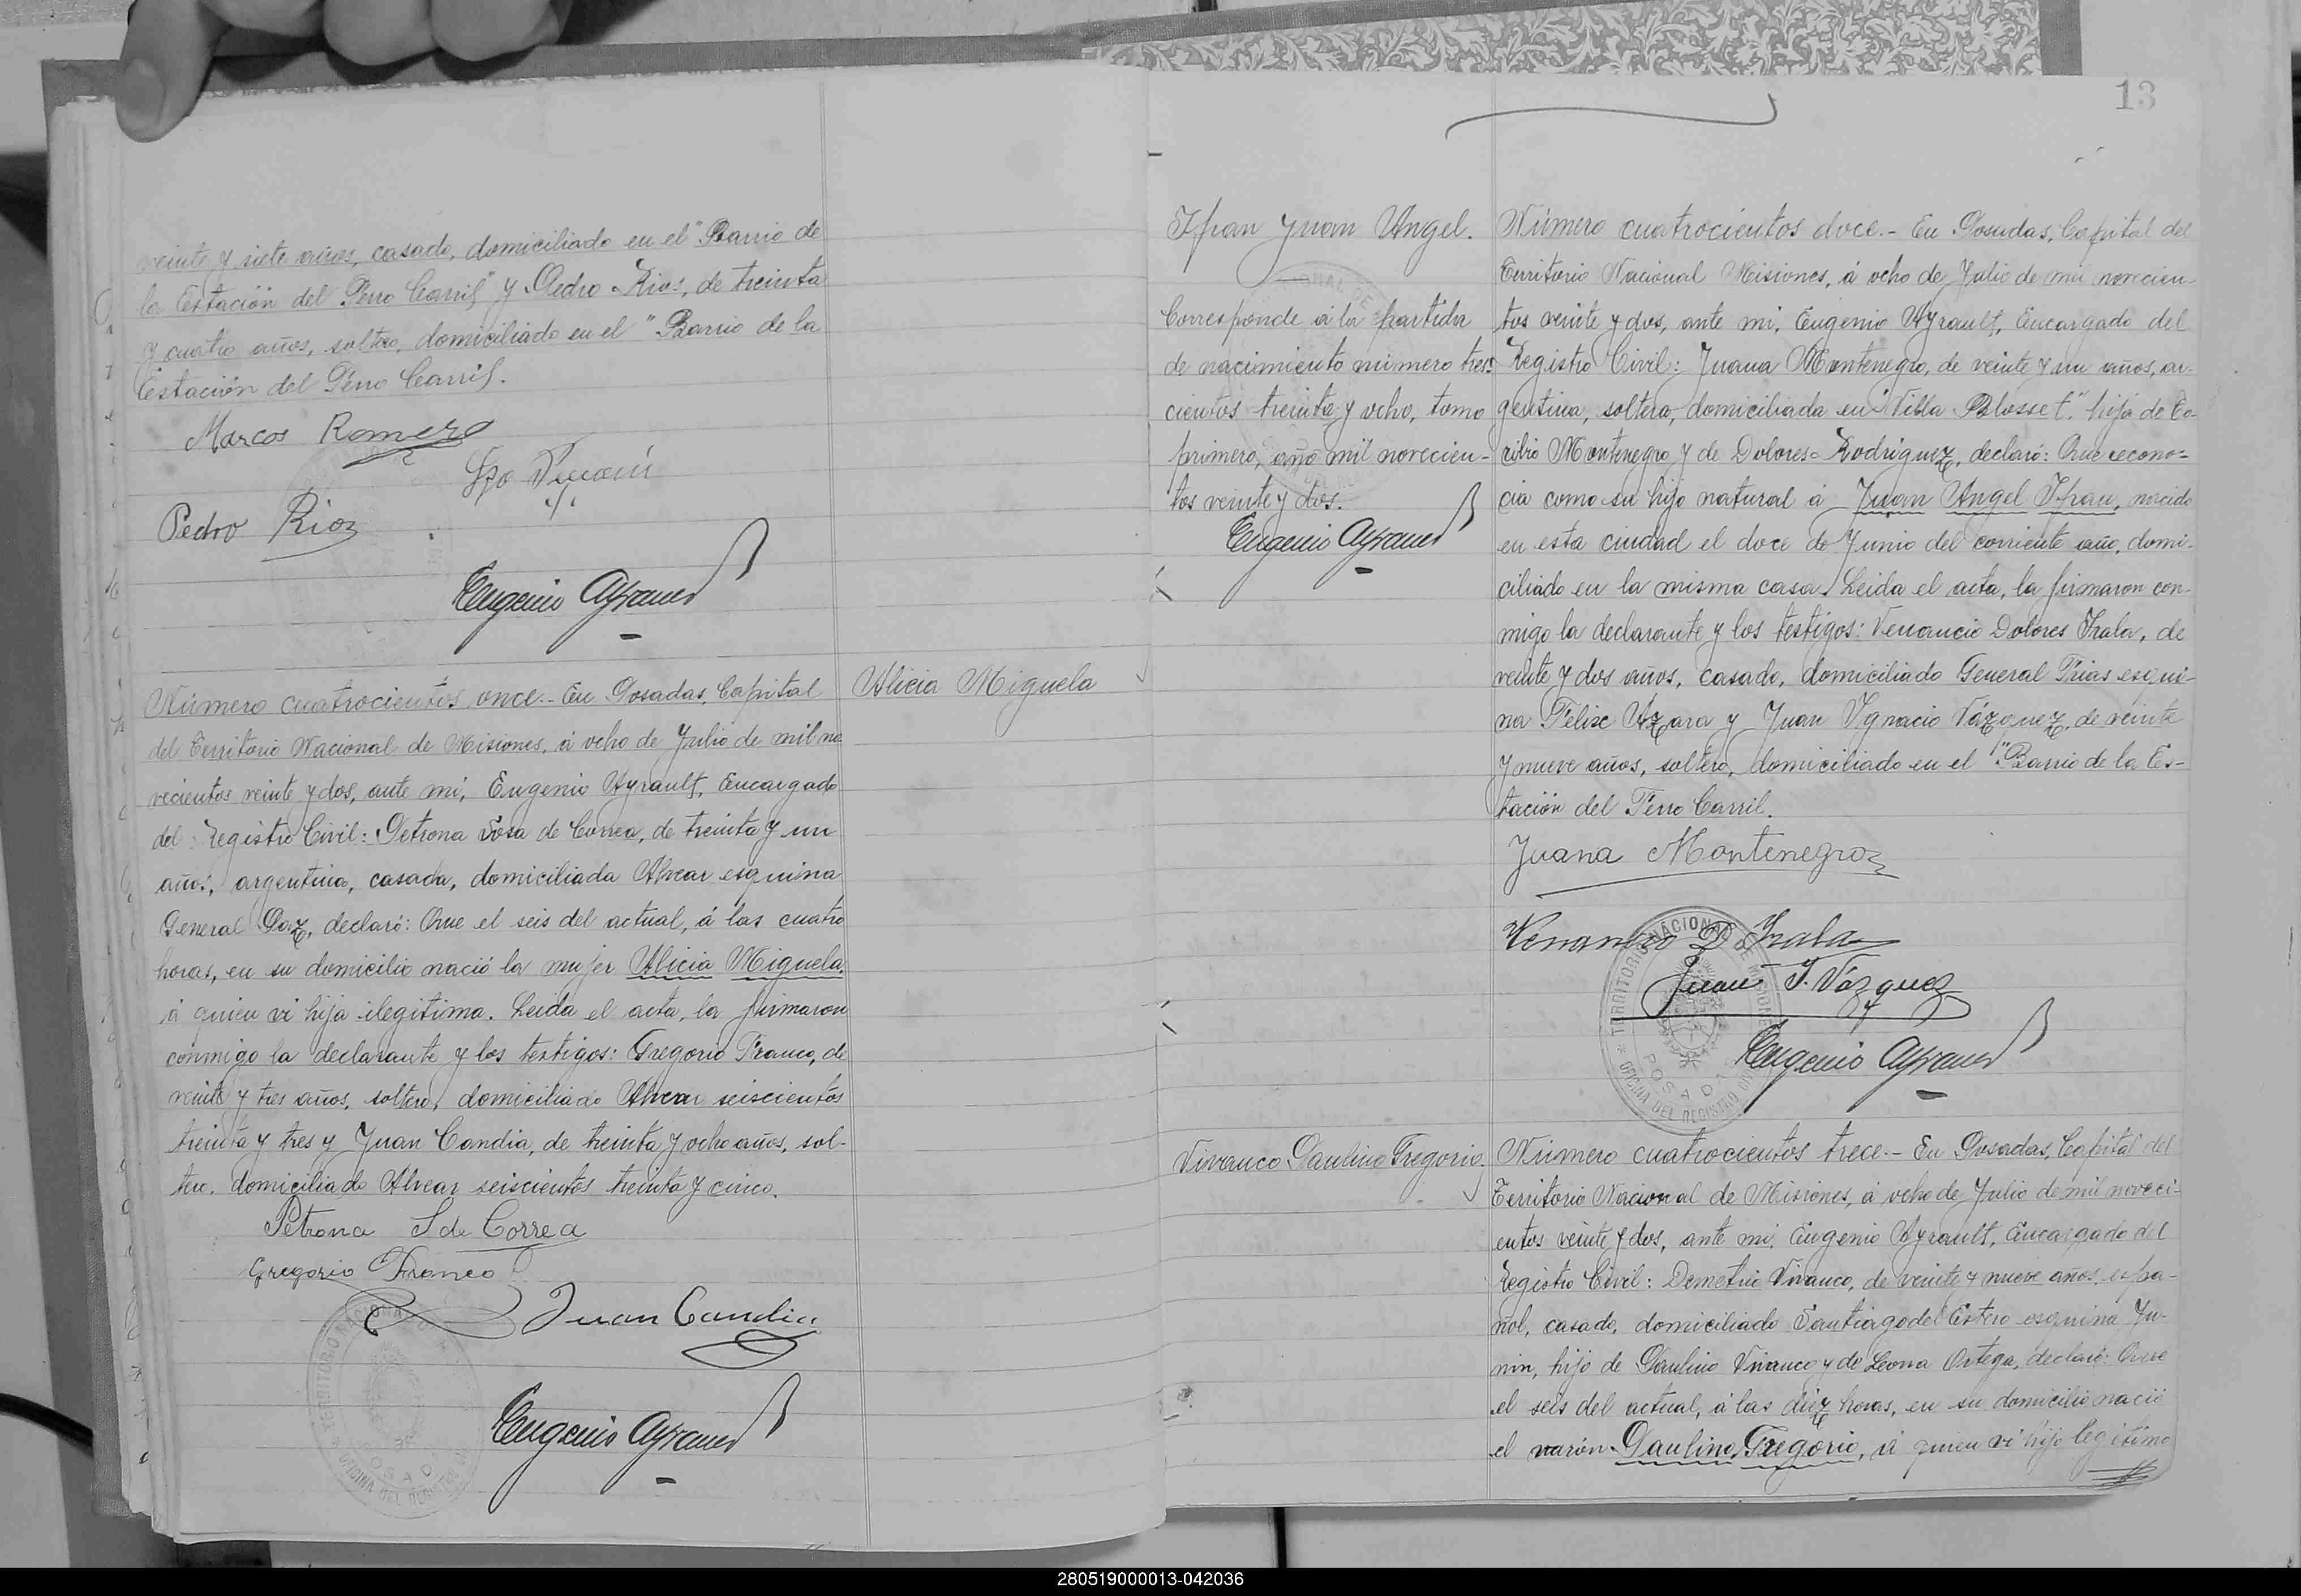 veinte y siete años, casado, domiciliado en el "Barrio de
la Estación del Ferro Carril" y Pedro Rios, de treinta
y cuatro años, soltero, domiciliado en el "Barrio de la
Estación del Ferro Carril.
Marcos Romero
Pedro Rios
Eugenio Ayrault
Número cuatrocientos once.- En Posadas, Capital
del Territorio Nacional de Misiones, á ocho de Julio de mil no
vecientos veinte y dos, ante mi, Eugenio Ayrault, Encargado
del Registro Civil: Petrona Sosa de Correa, de treinta y un
años, argentina, casada, domiciliada Alvear esquina
General Paz, declaró: Que el seis del actual, á las cuatro
horas, en su domicilio nació la mujer Alicia Miguela,
á quien vi hija ilegitima. Leida el acta, la firmaron
conmigo la declarante y los testigos: Gregorio Franco, de
veinte y tres años, soltero, domiciliado Alvear seiscientos
treinta y tres y Juan Candia, de treinta y ocho años, sol-
tero, domiciliado Alvear seiscientos treinta y cinco.
Petrona S de Correa
Gregorio Franco
Juan Candia
Eugenio Ayrault
TERRITORIO NACIONAL DE MISIONES
POSADAS
OFICINA DEL REGISTRO CIVIL
Alicia Miguela
13
Ifran Juan Angel.
Corresponde á la partida
de nacimiento número tres-
cientos treinta y ocho, tomo
primero, año mil novecien-
tos veinte y dos.
Eugenio Ayrault
Número cuatrocientos doce.- En Posadas, Capital del
Territorio Nacional Misiones, á ocho de Julio de mil novecien-
tos veinte y dos, ante mi, Eugenio Ayrault, Encargado del
Registro Civil: Juana Montenegro, de veinte y un años, ar-
gentina, soltera, domiciliada en "Villa Blosset", hija de To-
ribio Montenegro y de Dolores Rodriguez, declaró: Que recono-
cia como su hijo natural á Juan Angel Ifran, nacido
en esta ciudad el doce de Junio del corriente año, domi-
ciliado en la misma casa. Leida el acta, la firmaron con-
migo la declarante y los testigos: Venancio Dolores Irala, de
veinte y dos años, casado, domiciliado General Frias esqui-
na Felix Azara y Juan Ygnacio Vázquez, de veinte
y nueve años, soltero, domiciliado en el "Barrio de la Es-
tación del Ferro Carril.
Juana Montenegro
Venancio D Irala
Juan I. Vázquez
Eugenio Ayrault
TERRITORIO NACIONAL DE MISIONES
POSADAS
OFICINA DEL REGISTRO CIVIL
Vivanco Paulino Gregorio.
Número cuatrocientos trece.- En Posadas, Capital del
Territorio Nacional de Misiones, á ocho de Julio de mil noveci-
entos veinte y dos, ante mi, Eugenio Ayrault, Encargado del
Registro Civil: Demetrio Vivanco, de veinte y nueve años, espa-
ñol, casado, domiciliado Santiago del Estero esquina Ju-
nin, hijo de Paulino Vivanco y de Leona Ortega, declaró: Que
el seis del actual, á las diez horas, en su domicilio nació
el varón Paulino Gregorio, á quien vi hijo legitimo
280519000013-042036